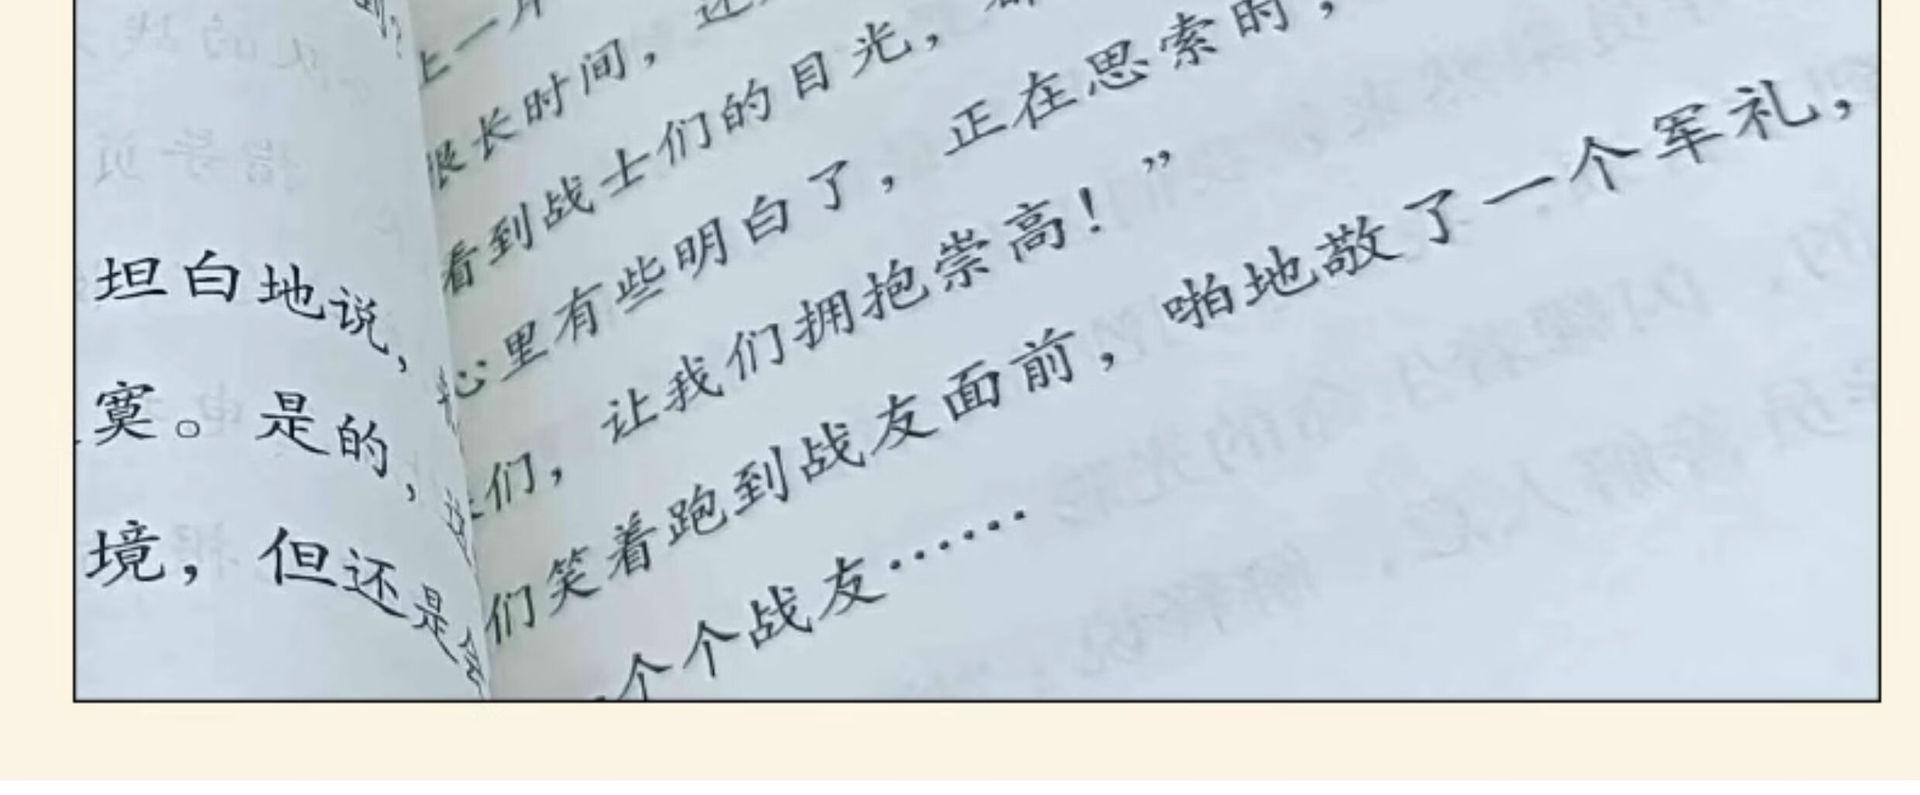 坦白地说，
寞。是的，这
境，但还是会
上一片
很长时间，还
看到战士们的目光，都
心里有些明白了，正在思索时，
们，让我们拥抱崇高！”
们笑着跑到战友面前，啪地敬了一个军礼，
一个个战友……